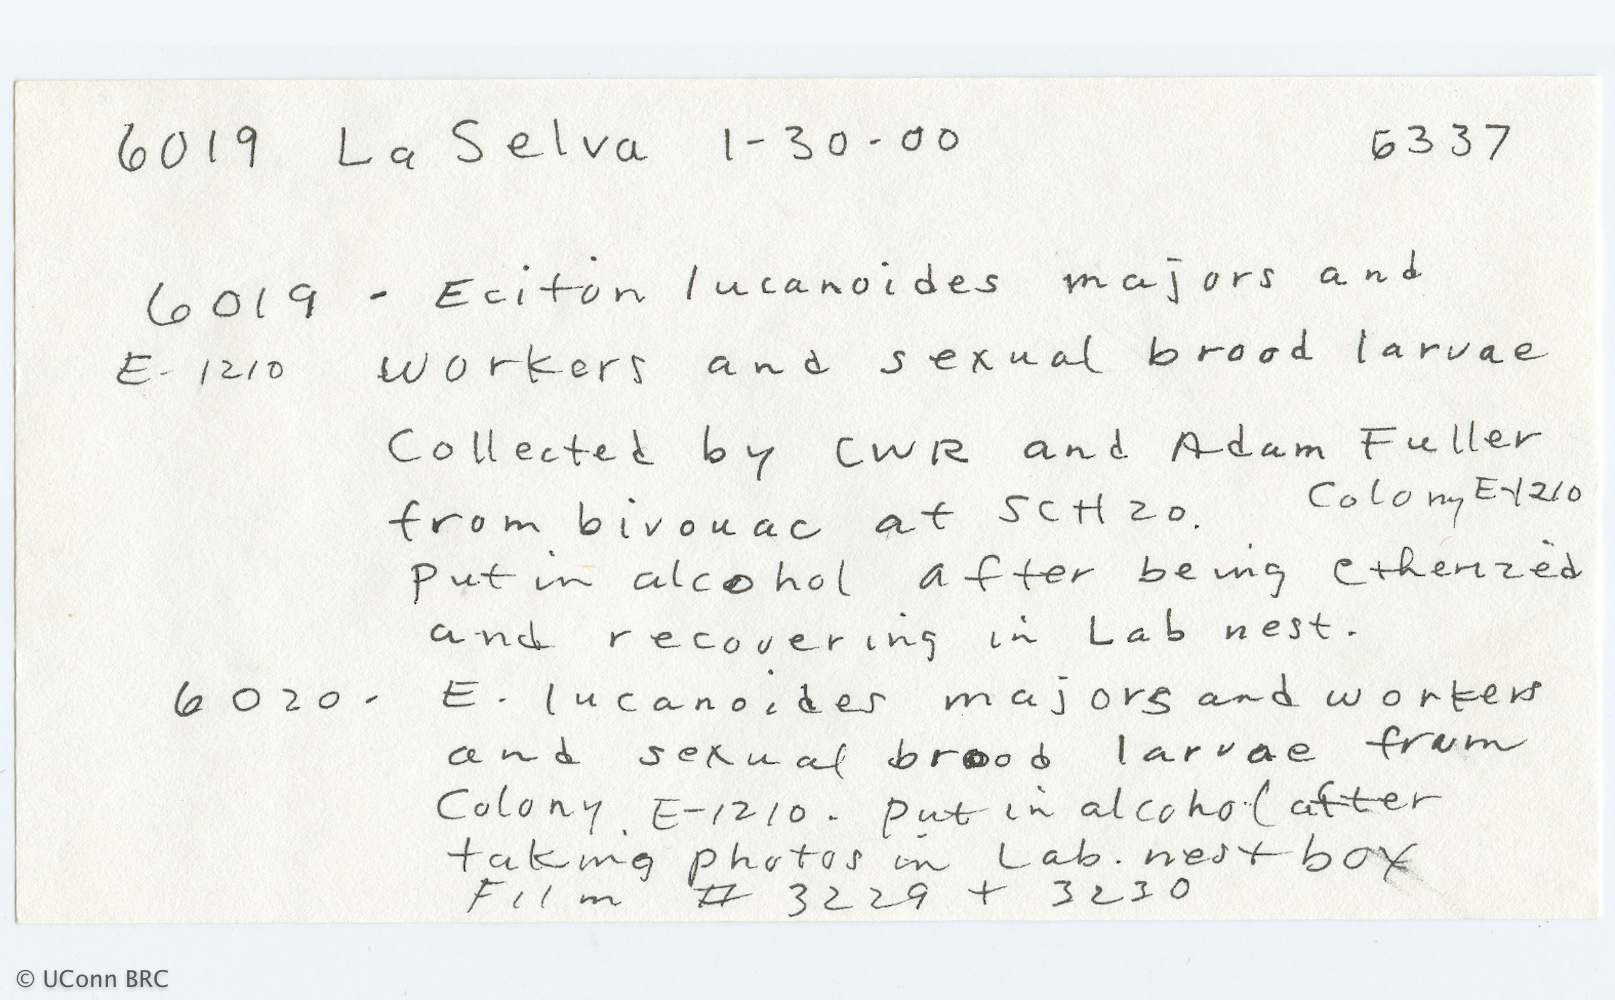 6019 La Selva 1-30-00 6337
6019 - Eciton lucanoides majors and
E-1210 workers and sexual brood larvae
Collected by CWR and Adam Fuller
from bivouac at SCH 20. Colony E-1210
put in alcohol after being etherized
and recovering in Lab nest.
6020 - E. lucanoides majors and workers
and sexual brood larvae from
Colony E-1210. put in alcohol after
taking photos in Lab. nest box
Film # 3229 + 3230
© UConn BRC